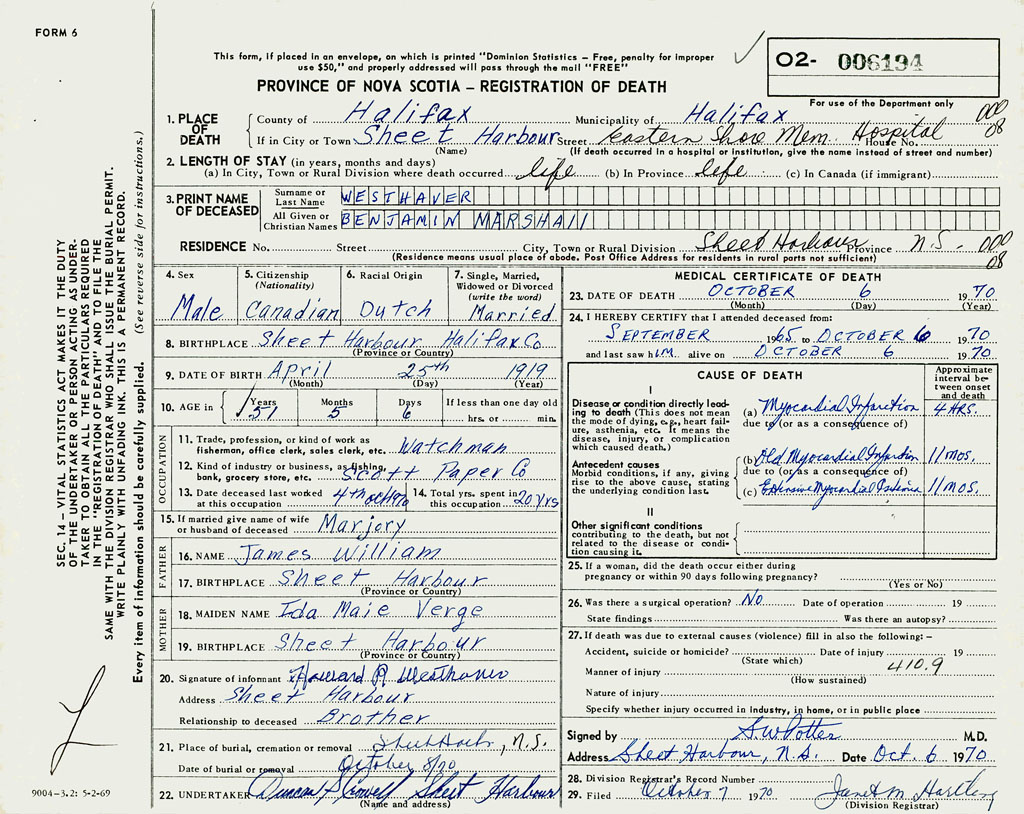 FORM 6
This form, if placed in an envelope, on which is printed "Dominion Statistics – Free, penalty for improper
use $50," and properly addressed will pass through the mail "FREE"
02- 006194
For use of the Department only
PROVINCE OF NOVA SCOTIA – REGISTRATION OF DEATH
1. PLACE OF DEATH
County of Halifax Municipality of Halifax 000
If in City or Town Sheet Harbour Street Eastern Shore Mem. Hospital House No. 08
(Name) (If death occurred in a hospital or institution, give the name instead of street and number)
2. LENGTH OF STAY (in years, months and days)
(a) In City, Town or Rural Division where death occurred life (b) In Province life (c) In Canada (if immigrant)
3. PRINT NAME OF DECEASED
Surname or Last Name WESTHAVER
All Given or Christian Names BENJAMIN MARSHAll
RESIDENCE No. Street City, Town or Rural Division Sheet Harbour Province N.S. 000
(Residence means usual place of abode. Post Office Address for residents in rural parts not sufficient) 08
4. Sex
Male
5. Citizenship
(Nationality)
Canadian
6. Racial Origin
Dutch
7. Single, Married,
Widowed or Divorced
(write the word)
Married
8. BIRTHPLACE Sheet Harbour Halifax Co
(Province or Country)
9. DATE OF BIRTH April 25th 1919
(Month) (Day) (Year)
10. AGE in Years Months Days If less than one day old
51 5 6 hrs. or min.
OCCUPATION
11. Trade, profession, or kind of work as
fisherman, office clerk, sales clerk, etc. Watchman
12. Kind of industry or business, as fishing,
bank, grocery store, etc. Scott Paper Co
13. Date deceased last worked at this occupation 4th oct 1970
14. Total yrs. spent in this occupation 20 yrs
15. If married give name of wife
or husband of deceased Marjory
FATHER
16. NAME James William
17. BIRTHPLACE Sheet Harbour
(Province or Country)
MOTHER
18. MAIDEN NAME Ida Maie Verge
19. BIRTHPLACE Sheet Harbour
(Province or Country)
20. Signature of informant x Howard R Westhaver
Address Sheet Harbour
Relationship to deceased Brother
21. Place of burial, cremation or removal Sheet Harb, N.S.
Date of burial or removal October 8/70
22. UNDERTAKER Duncan Sheet Harbour
(Name and address)
MEDICAL CERTIFICATE OF DEATH
23. DATE OF DEATH OCTOBER 6 1970
(Month) (Day) (Year)
24. I HEREBY CERTIFY that I attended deceased from:
SEPTEMBER 1965 to OCTOBER 6 1970
and last saw hIM alive on OCTOBER 6 1970
CAUSE OF DEATH
Approximate
interval be-
tween onset
and death
I
Disease or condition directly lead-
ing to death (This does not mean
the mode of dying, e.g., heart fail-
ure, asthenia, etc. It means the
disease, injury, or complication
which caused death.)
(a) Myocardial Infarction 4 HRS.
due to (or as a consequence of)
Antecedent causes
Morbid conditions, if any, giving
rise to the above cause, stating
the underlying condition last.
(b) Old Myocardial Infarction 11 MOS.
due to (or as a consequence of)
(c) Extensive Myocardial Ischemia 11 MOS.
II
Other significant conditions
contributing to the death, but not
related to the disease or condi-
tion causing it.
25. If a woman, did the death occur either during
pregnancy or within 90 days following pregnancy?
(Yes or No)
26. Was there a surgical operation? No Date of operation 19
State findings Was there an autopsy?
27. If death was due to external causes (violence) fill in also the following: –
Accident, suicide or homicide? Date of injury 19
(State which)
410.9
Manner of injury
(How sustained)
Nature of injury
Specify whether injury occurred in industry, in home, or in public place
Signed by S.W. Potter M.D.
Address Sheet Harbour, N.S. Date Oct. 6 1970
28. Division Registrar's Record Number
29. Filed October 7 1970 Janet M Hartling
(Division Registrar)
SEC. 14 – VITAL STATISTICS ACT MAKES IT THE DUTY
OF THE UNDERTAKER OR PERSON ACTING AS UNDER-
TAKER TO OBTAIN ALL THE PARTICULARS REQUIRED
IN THE "REGISTRATION OF DEATH" AND TO FILE THE
SAME WITH THE DIVISION REGISTRAR WHO SHALL ISSUE THE BURIAL PERMIT.
WRITE PLAINLY WITH UNFADING INK. THIS IS A PERMANENT RECORD.
Every item of information should be carefully supplied. (See reverse side for instructions.)
9004-3.2: 5-2-69